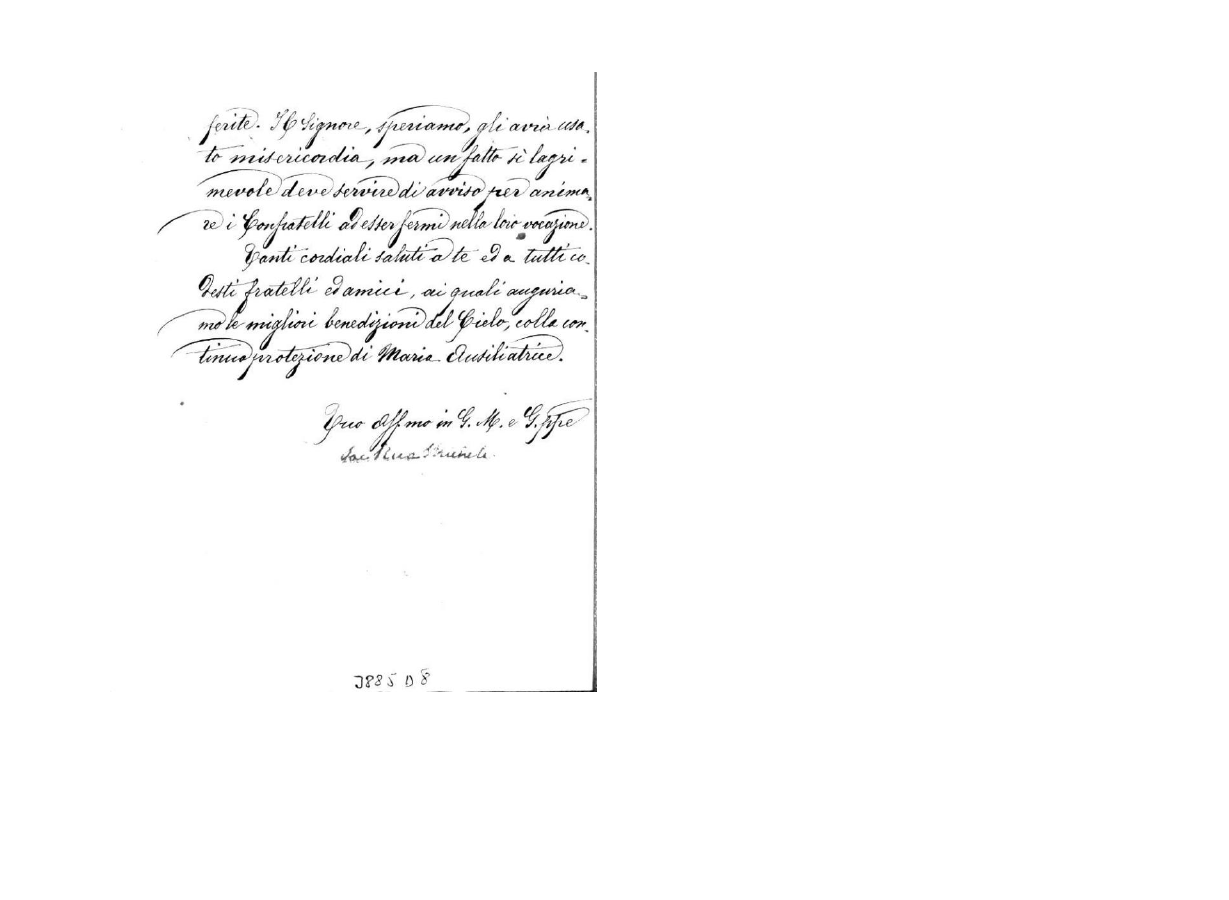 ferite. Il Signore, speriamo, gli avrà usa-
to misericordia, ma un fatto sì lagri-
mevole deve servire di avviso per anima-
re i Confratelli ad esser fermi nella loro vocazione.
Tanti cordiali saluti a te ed a tutti co-
desti fratelli ed amici, ai quali auguria-
mo le migliori benedizioni del Cielo, colla con-
tinua protezione di Maria Ausiliatrice.
Tuo Affmo in G. M. e G.ppe
Sac. Rua Michele
3885 D 8